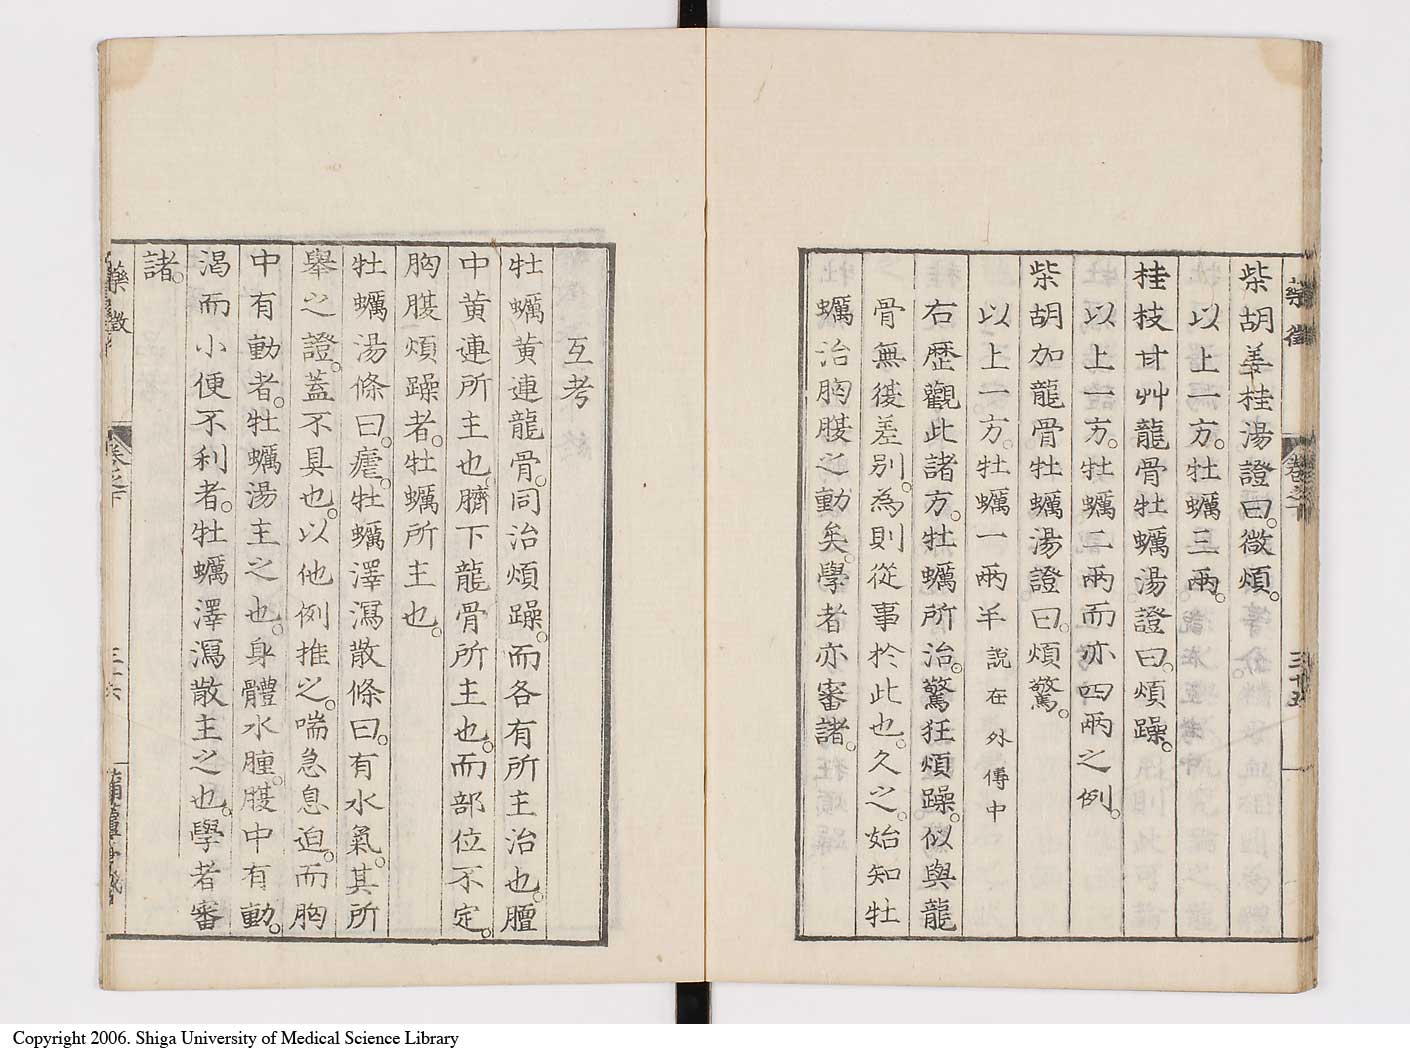 藥徵
卷之下
三十五
柴胡姜桂湯證曰。微煩。
以上一方。牡蠣三兩。
桂枝甘艸龍骨牡蠣湯證曰。煩躁。
以上一方。牡蠣二兩而亦四兩之例。
柴胡加龍骨牡蠣湯證曰。煩驚。
以上一方。牡蠣一兩半說在外傳中
右歷觀此諸方。牡蠣所治。驚狂煩躁。似與龍
骨無後差別。為則從事於此也。久之。始知牡
蠣治胸腹之動矣。學者亦審諸。
互考
牡蠣黄連龍骨。同治煩躁。而各有所主治也。膻
中黄連所主也。臍下龍骨所主也。而部位不定。
胸腹煩躁者。牡蠣所主也。
牡蠣湯條曰。瘧。牡蠣澤瀉散條曰。有水氣。其所
舉之證。蓋不具也。以他例推之。喘急息迫。而胸
中有動者。牡蠣湯主之也。身體水腫。腹中有動。
渴而小便不利者。牡蠣澤瀉散主之也。學者審
諸。
藥徵
卷之下
三十六
Copyright 2006. Shiga University of Medical Science Library